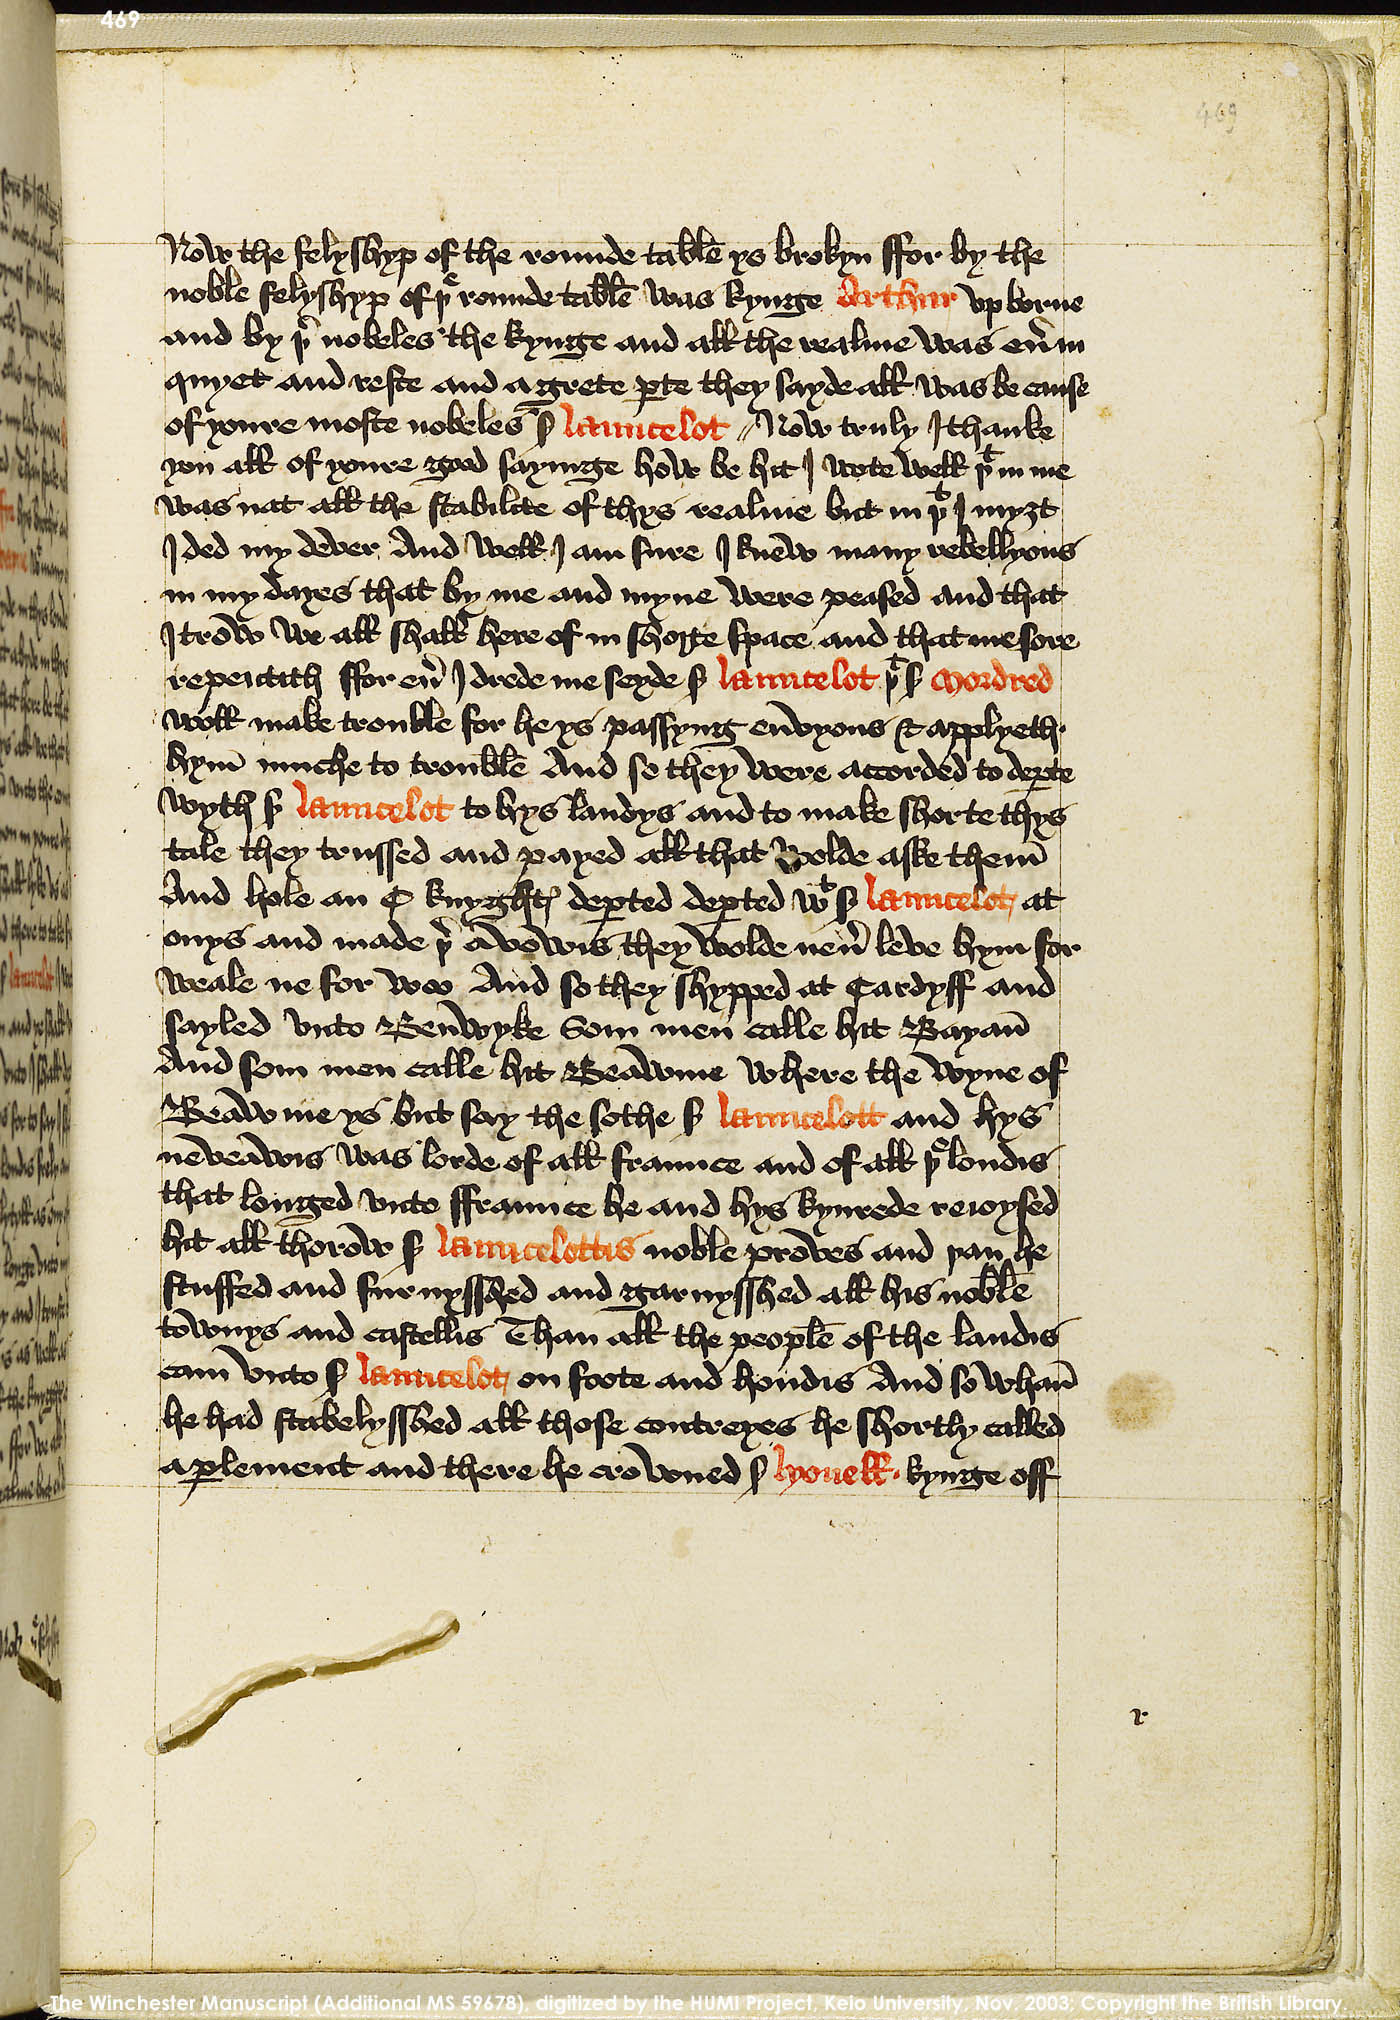 469
469
Now the felyshyp of the rounde table ys brokyn ffor by the
noble felyshyp of þe rounde table was kynge Arthur vp borne
and by þr nobeles the kynge and all the realme was eūr in
quyet and reste and a grete ꝑte they sayde all was be cause
of youre moste nobeles sʳ launcelot // Now truly I thanke
you all of youre good sayinge how be hit I wote well þt in me
was nat all the stabilite of thys realme but in þt I myȝt
I ded my dever And well I am sure I knew many rebellyons
in my dayes that by me and myne were peased and that
I trow we all shall here of in shorte space and that me sore
repentith ffor eūr I drede me seyde sʳ launcelot þt sʳ Mordred
woll make trouble for he ys passyng envyous & applyeth
hym muche to trouble And so they were accorded to deꝑte
wyth sʳ launcelot to hys landys and to make shorte thys
tale they trussed and payed all that wolde aske them
And hole an C knyghtꝭ deꝑted deꝑted wt sʳ launcelot at
onys and made þr avowis they wolde neūr leve hym for
weale ne for woo And so they shypped at Cardyff and
sayled vnto Benwyke Som men calle hit Bayan
And som men calle hit Beawme where the wyne of
Beawme ys but say the sothe sʳ launcelott and hys
neveawis was lorde of all fraunce and of all þe londis
that longed vnto ffraunce he and hys kynrede reioysed
hit all thorow sʳ launcelottis noble prowes and þan he
stuffed and furnysshed and garnysshed all his noble
townys and castellis Than all the people of the landis
cam vnto sʳ launcelot on foote and hondis And so whan
he had stabelysshed all those contreyes he shortly called
a ꝑlement and there he crowned sʳ lyonell kynge off
r
The Winchester Manuscript (Additional MS 59678), digitized by the HUMI Project, Keio University, Nov. 2003; Copyright the British Library.